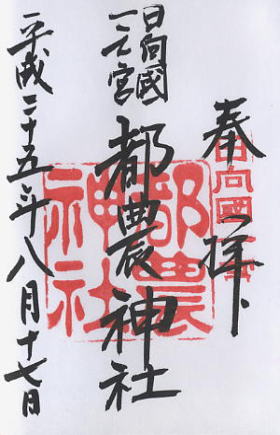 奉拝
日向國
一之宮
都農神社
平成二十五年八月十七日
日向國一之宮
都農
神社